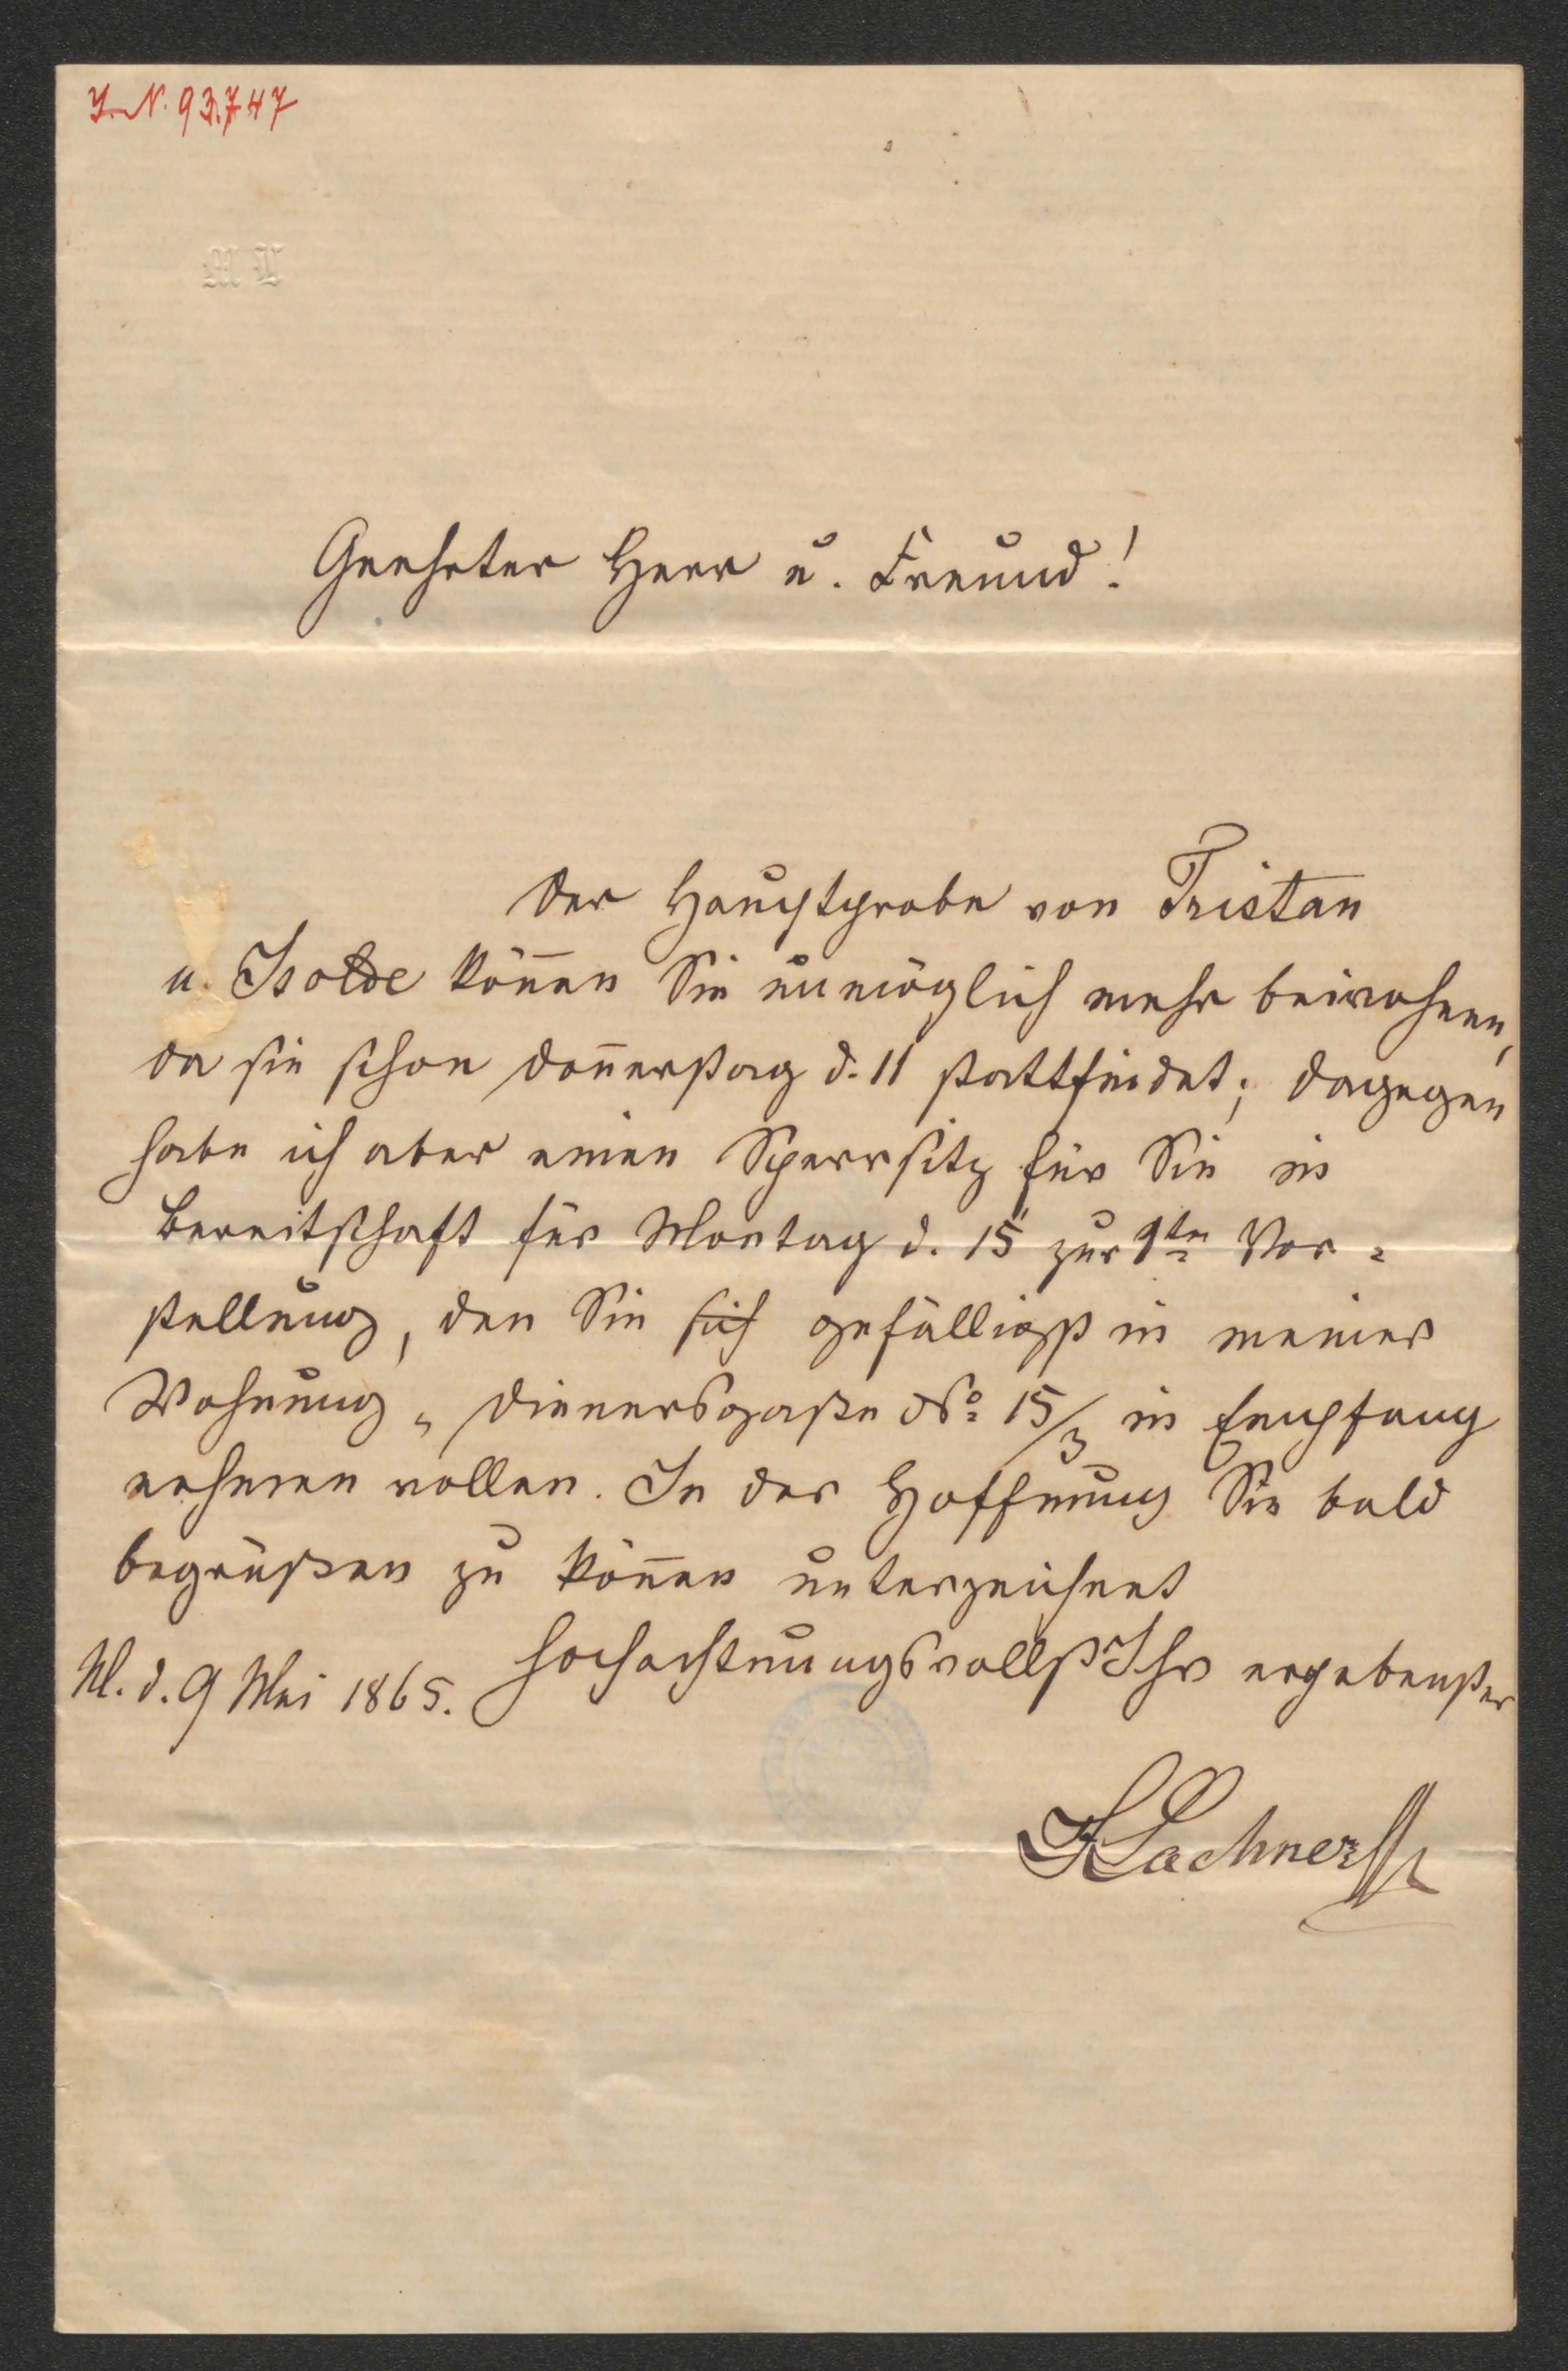 I. N. 93.747
M L
Geehrter Herr u. Freund!
Der Hauptprobe von Tristan
u. Isolde kön̄en Sie unmöglich mehr beiwohnen,
da sie schon Don̄erstag d. 11 stattfindet; dagegen
habe ich aber einen Sperrsitz für Sie in
Bereitschaft für Montag d. 15 zur 1ten Vor=
stellung, den Sie sich gefälligst in meiner
Wohnung „ Dienersgasse No 15/3 in Empfang
nehmen wollen. In der Hoffnung Sie bald
begrüßen zu kön̄en unterzeichnet
hochachtungsvollst Ihr ergebenster
M. d. 9 Mai 1865.
FLachner